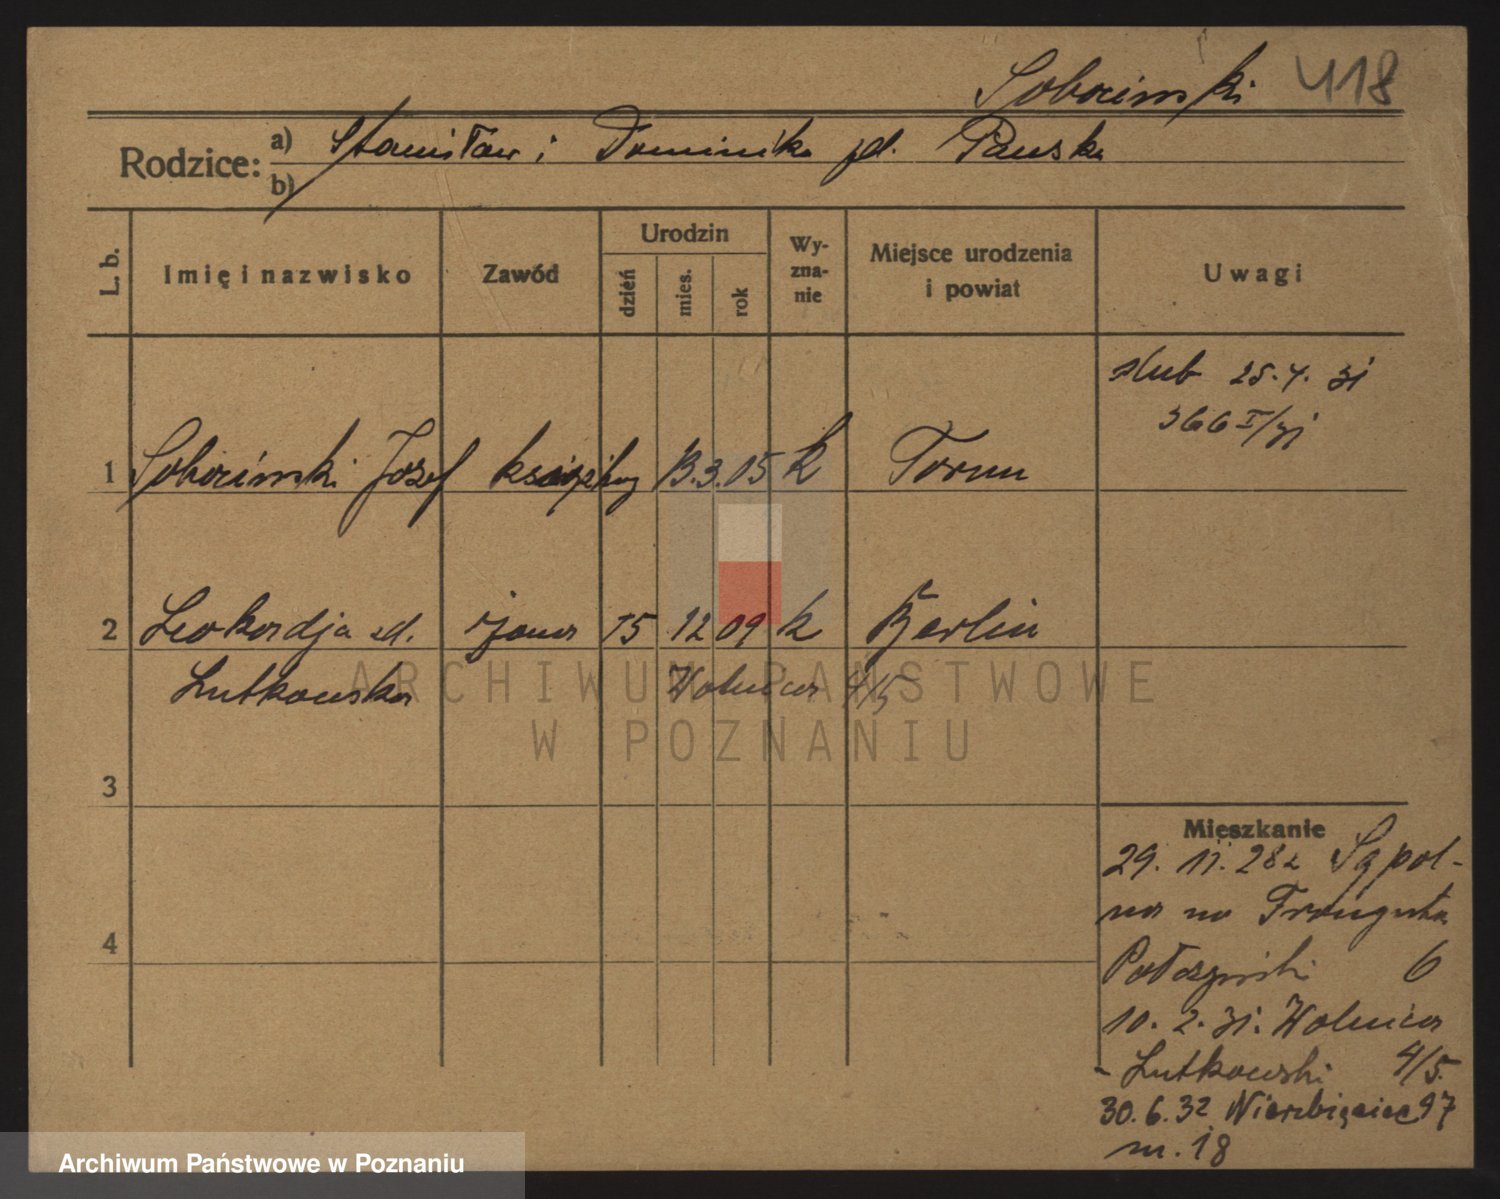 Sobociński 418
Rodzice: a) Stanisław i Dominika zd. Pauska
b)
L. b. Imię i nazwisko Zawód Urodzin dzień mies. rok Wyznanie Miejsce urodzenia i powiat Uwagi
ślub 25.4.31
366 I/31
1 Sobociński Józef 13.3.05 k Toruń
2 Leokadja zd. żona 15 12 09 k Berlin
Lutkowska Wolnica 4/5
3
Mieszkanie
29. 11. 28 z Sąpol-
na na Traugutta
4
6
10. 2. 31. Wolnica
- Lutkowski 4/5.
30.6.32 Wierzbięcice 97
m. 18
ARCHIWUM PAŃSTWOWE
W POZNANIU
Archiwum Państwowe w Poznaniu